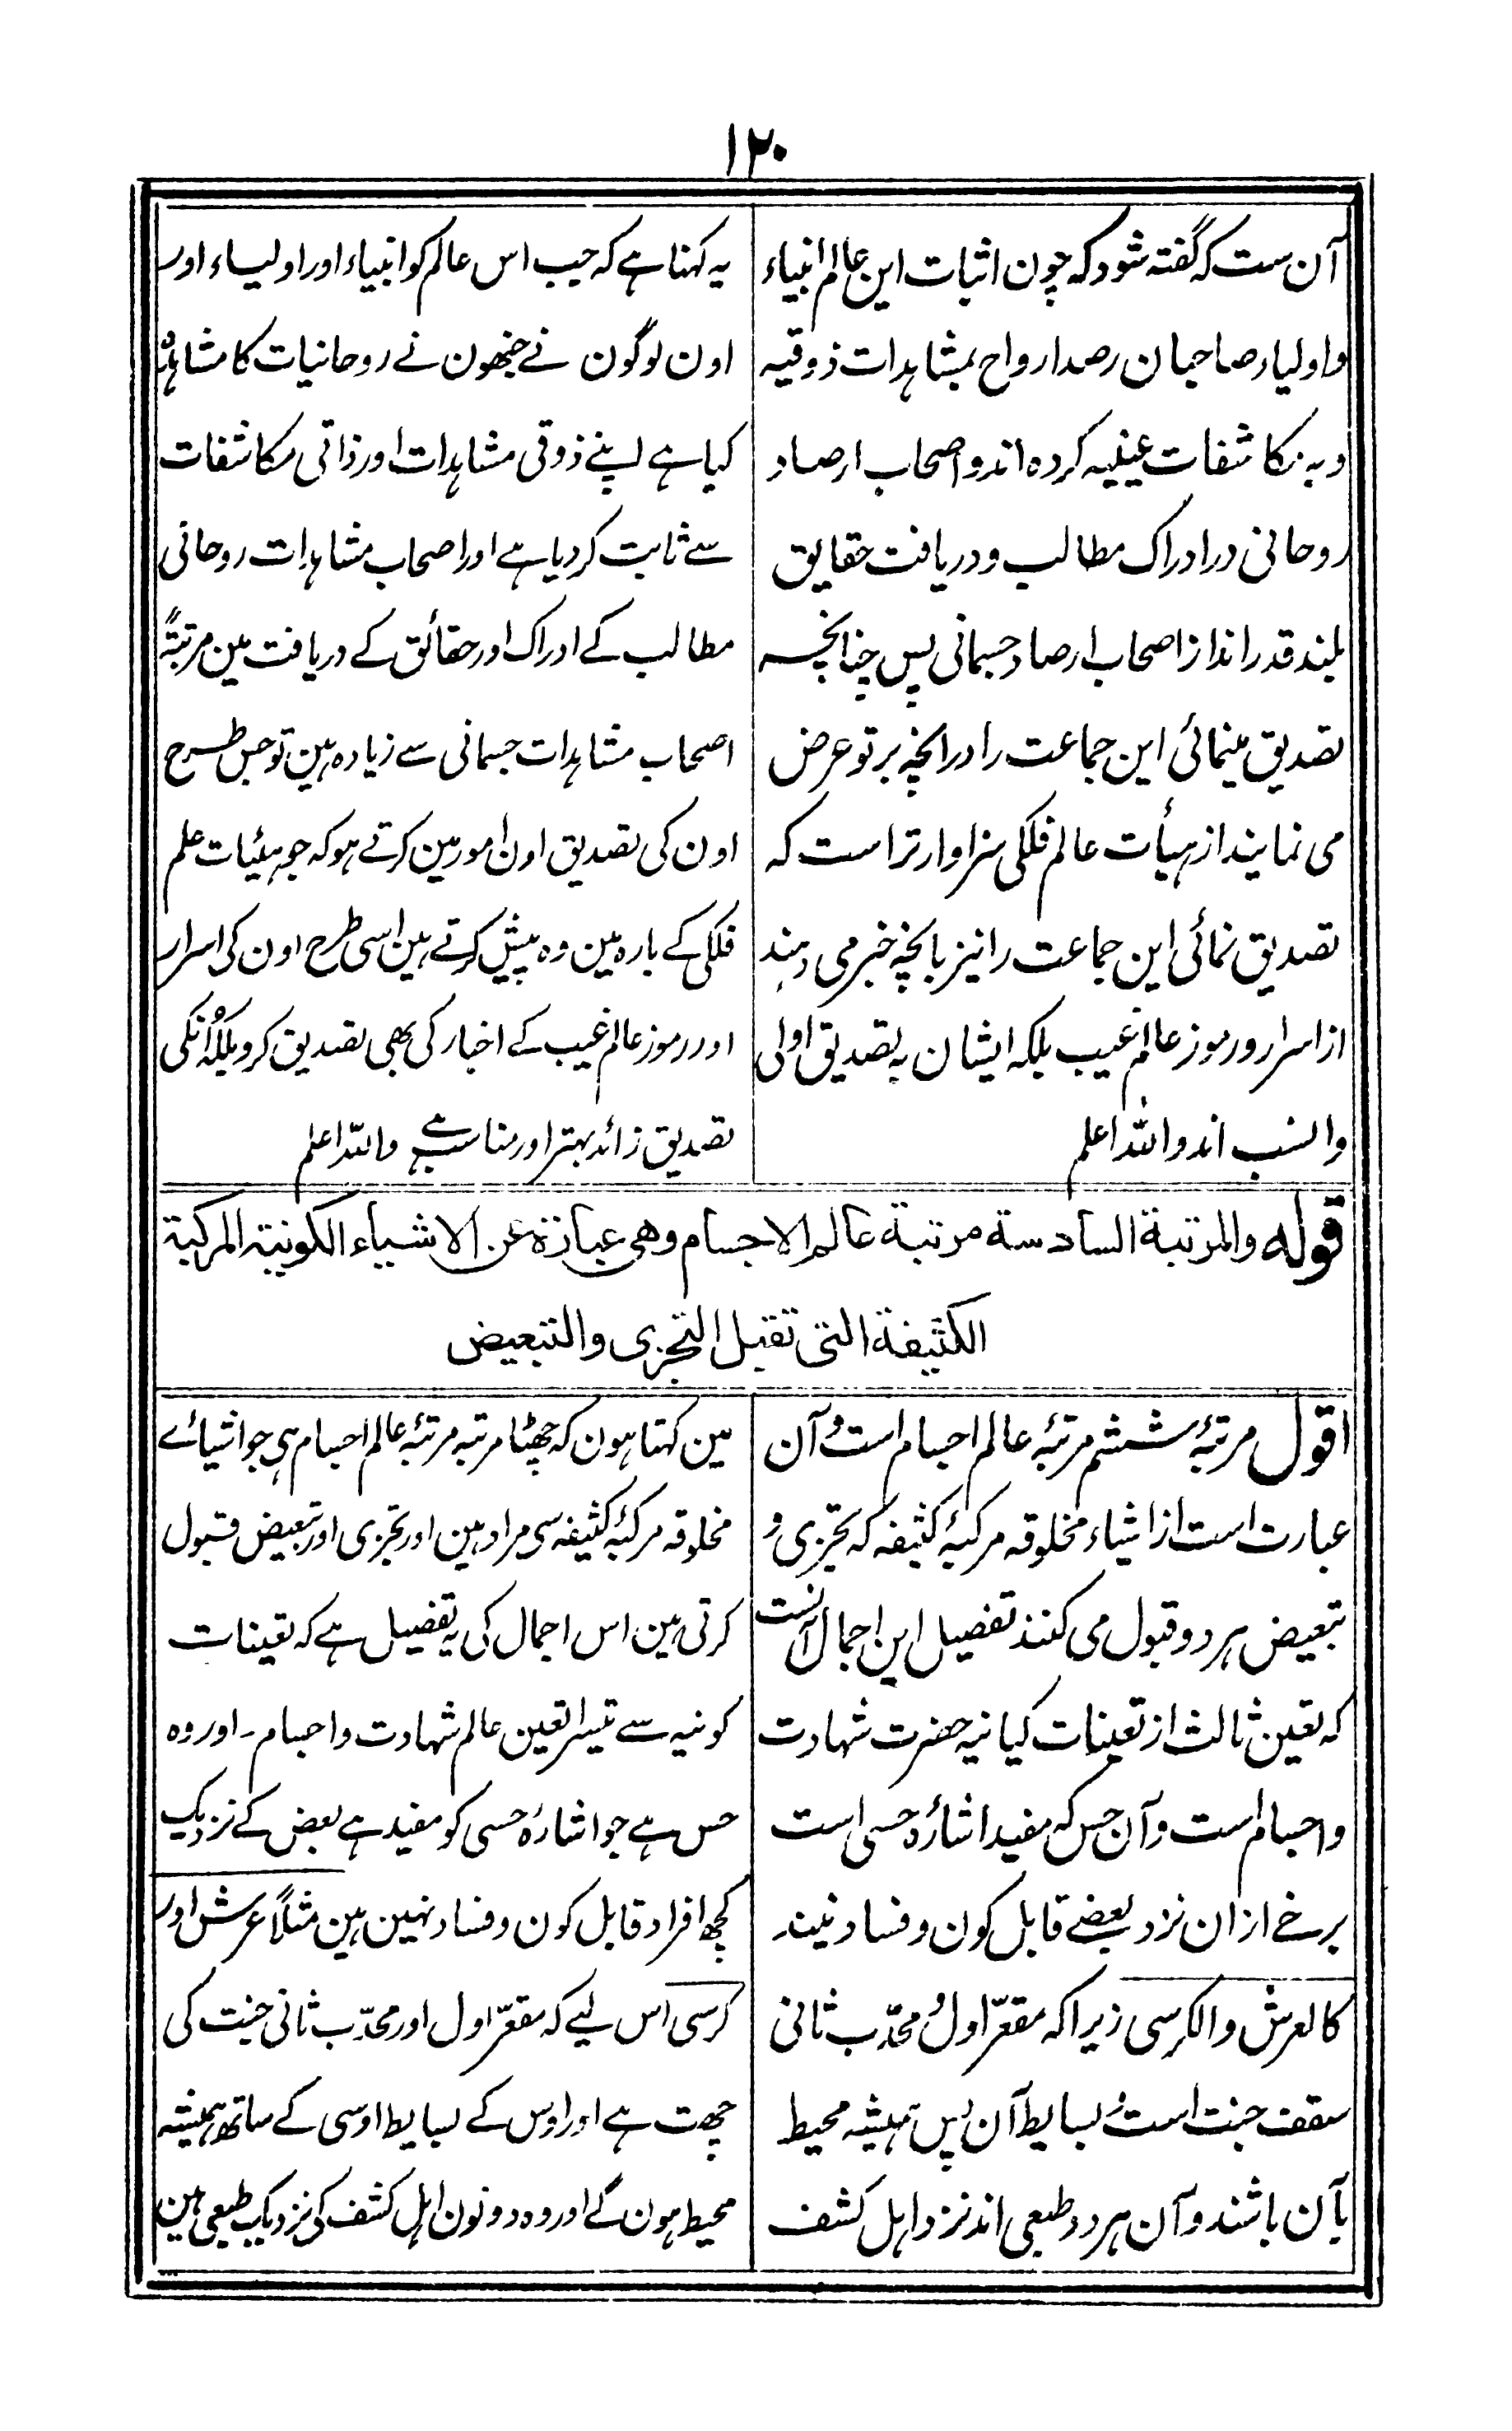 ۱۲۰
آن ست که گفته شود که چون اثبات این عالم انبیاء
و اولیاء صاحبان رصد ارواح بمشاہدات ذوقیه
و به مکاشفات عینیه کرده اند و اصحاب ارصاد
روحانی در ادراک مطالب و دریافت حقایق
بلند قدر اند از اصحاب ارصاد جسمانی پس چنانچسہ
تصدیق مینمائی این جماعت را در انچه بر تو عرض
می نمایند از ہیأت عالم فلکی سزاوار تر است که
تصدیق نمائی این جماعت را نیز بانچه خبر می دہند
از اسرار و رموز عالم غیب بلکه ایشان به تصدیق اولی
و انسب اند واللہ اعلم
یہ کہنا ہے کہ جب اس عالم کو انبیاء اور اولیاء اور
اون لوگون نے جنھون نے روحانیات کا مشاہدہ
کیا ہے اپنے ذوقی مشاہدات اور ذاتی مکاشفات
سے ثابت کر دیا ہے اور اصحاب مشاہدات روحانی
مطالب کے ادراک اور حقائق کے دریافت مین مرتبۃً
اصحاب مشاہدات جسمانی سے زیادہ ہین تو جس طرح
اون کی تصدیق اون امور مین کرتے ہو کہ جو ہیئیات علم
فلکی کے بارہ مین وہ پیش کرتے ہین اسی طرح اون کی اسرار
اور رموز عالم غیب کے اخبار کی بھی تصدیق کرو بلکہ انکی
تصدیق زائد بہتر اور مناسب ہے واللہ اعلم
قوله والمرتبة السادسة مرتبة عالم الاجسام وهی عبارة عن الاشیاء الکونیة المرکبة
الکثیفة التی تقبل التجزی والتبعیض
اقول مرتبۂ ششم مرتبۂ عالم اجسام است و آن
عبارت است از اشیاء مخلوقه مرکبۂ کثیفه که تجزی و
تبعیض ہر دو قبول می کنند تفصیل این اجمال آنست
که تعین ثالث از تعینات کیانیه حضرت شہادت
و اجسام است و آن حس که مفید اشارۂ حسی است
برخے ازان نزد بعضے قابل کون و فساد نیند
کالعرش والکرسی زیرا که مقعّر اول و محدّب ثانی
سقف جنت است و بسایط آن پس ہمیشه محیط
بآن باشند و آن ہر دو طبعی اند نزد اہل کشف
مین کہتا ہون کہ چھٹا مرتبہ مرتبۂ عالم اجسام ہی جو اشیائے
مخلوقہ مرکبۂ کثیفہ سی مراد ہین اور تجزی اور تبعیض قبول
کرتی ہین اس اجمال کی یہ تفصیل ہے کہ تعینات
کونیہ سے تیسرا تعین عالم شہادت و اجسام۔ اور وہ
حس ہے جو اشارۂ حسی کو مفید ہے بعض کے نزدیک
کچھ افراد قابل کون و فساد نہین ہین مثلاً عرش اور
کرسی اس لیے کہ مقعّر اول اور محدّب ثانی جنت کی
چھت ہے اور اوس کے بسایط اوسی کے ساتھ ہمیشہ
محیط ہون گے اور وہ دونون اہل کشف کی نزدیک طبعی ہین